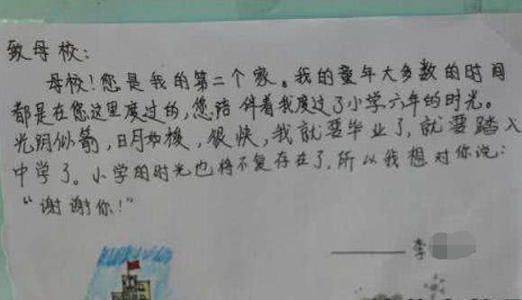 致母校：
母校！您是我的第二个家。我的童年大多数的时间
都是在您这里度过的，您陪伴着我度过了小学六年的时光。
光阴似箭，日月如梭，很快，我就要毕业了，就要踏入
中学了。小学的时光也将不复存在了，所以我想对你说：
“谢谢你！”
——李